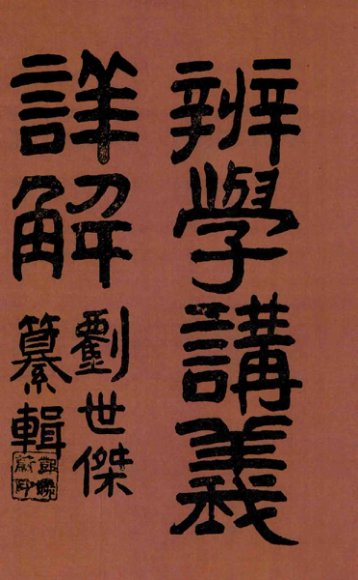 辨學講義
詳解
劉世傑
纂輯